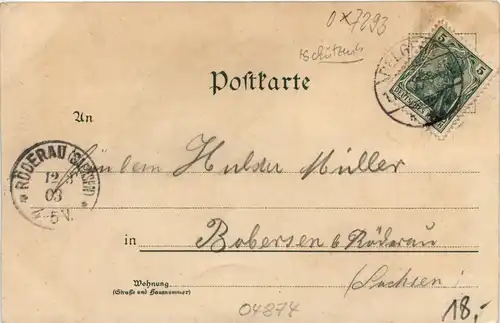 0x7293
Postkarte
5 5
An
Fräulein Hulda Müller
RÖDERAU (SACHSEN)
12
03
5-6N.
in Bobersen b Röderau
Wohnung
(Straße und Hausnummer)
(Sachsen)
04874
18,-